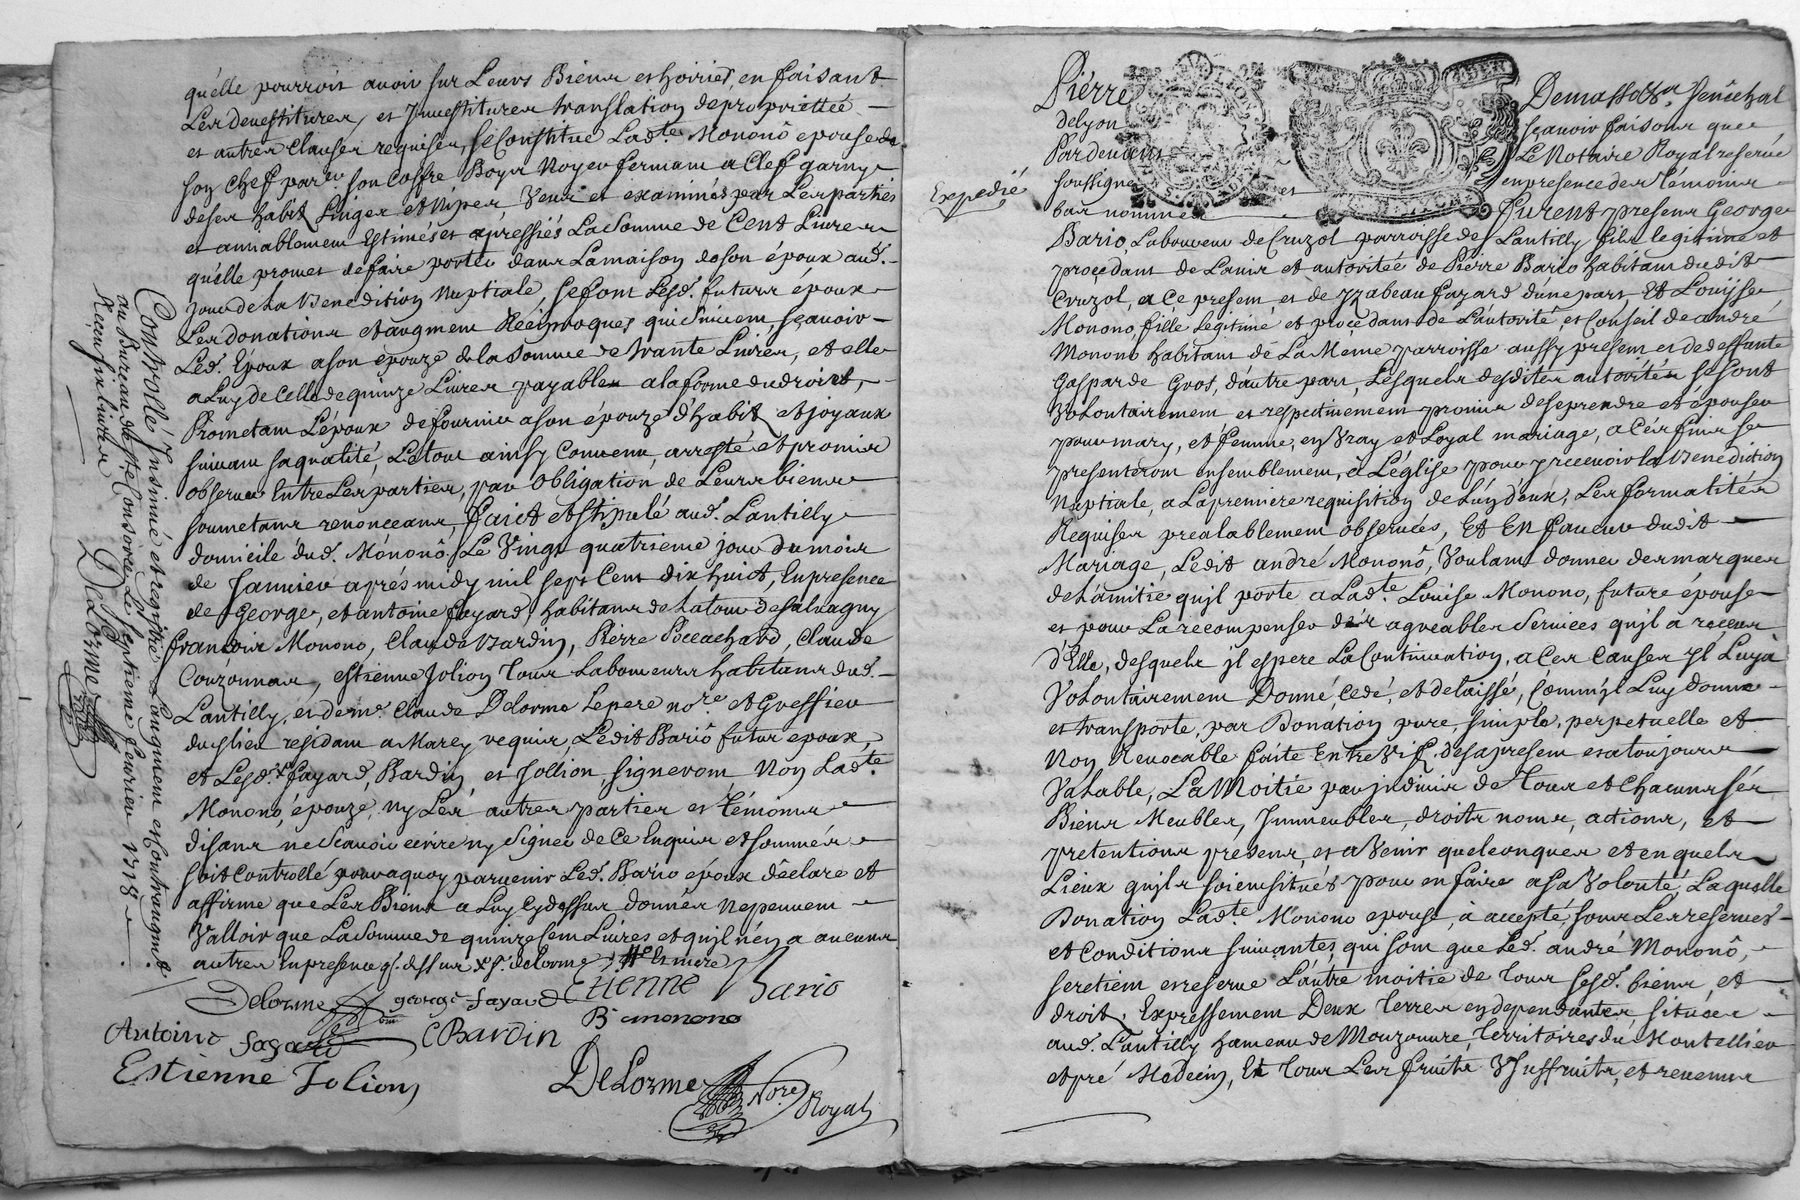 qu'elle pourroit avoir sur Leurs Biens et hoiries, en faisant
Les devestitures, et Investitures translation de propriettée
et autres clauses requises, Se Constitue Lad.te Mononô epouse de
son chef par.er son Coffre Boys Noyer fermant a Clef garny
de ses habit Linges et Nipes Veus et examinés par Les parties
et amiablement Estimés et apressiés La Somme de Cent Livres
qu'elle promet de faire porter dans La maison de son époux aud.
jour de La Benediction Nuptiale, se font Lesd. futurs époux
Les donations et augment Réciproques qui suivent sçavoir
Led. Epoux a son épouze de la Somme de trante Livres, et elle
a Luy de Celle de quinze Livres payables a la forme du droict,
Prometant L'époux de fournir a son épouze d'habit et joyaux
suivant sa qualité, Le tout ainsy Convenu, arresté et promis
observer Entre Les parties, par obligation de Leurs biens
soumetans renonceans, faict et Stipulé aud. Lantilly
domicile dud. Mononô, Le Vingt quatrieme jour du mois
de Janvier aprés midy mil sept Cent dix huict, En presence
de George, et antoine fayard, habitans de La tour de Salvagny
françois Monono, Claude Bardin, Pierre Poccachard, Claude
Couzonnas, estienne Jolion tous Laboureurs habitans dud.
Lantilly, et de m.e Claude Delorme Le pere no.re et Greffier
dud. lieu residant a Marcy requis, Ledit Bariô futur epoux,
et Lesd. fayard, Bardin et Jollion, signeront Non Lad.te
Monono, épouze, ny Les autres parties et témoins
disans ne Scavoir ecrire ny Signer de Ce Enquis et sommés
soit Controllé pour a quoy parvenir Led. Bario époux déclare et
affirme que Les Biens a Luy Cy dessus donnés Ne peuvent
Valloir que La Somme de quinze Cent Livres et qu'il n'en a aucuns
autres
Delorme george fayard Etienne Bario
B monono
Antoine fayard C Bardin
Estienne Jolion
DeLorme No.re Royal
Controllé Insinué et registré L'augment et Contraugment
au Bureau de S.te Consorce Le Septieme fevrier 1718
Receu six Livres
DeLorme
Expedié
Pierre Demasso Sr Senéchal
de Lyon sçavoir faisons que
Pardevant Le Notaire Royal reservé
soussigné et en presence des témoins
bas nommés furent presens George
Bario, Laboureur de Cruzol parroisse de Lantilly fils legitime et
procedant de L'avis et autoritée de Pierre Bario habitant dudit
Cruzol, a Ce present et de Yzabeau fayard d'une part, Et Louise
Monono, fille Legitime et procedant de L'autorité, et Conseil de andré
Monono habitant de La Meme parroisse aussy present et de deffante
Gasparde Gros, d'autre part, Lesquels desdites autorités se sont
Volontairement et respectivement promis de se prendre et épouser
pour mary, et femme, en Vray et Loyal mariage, a Ces fins se
presenteront ensemblement, à L'église pour y recevoir la Benediction
Nuptiale, a La premiere requisition de L'un d'eux, Les formalités
Requises prealablement observées, Et En faveur dudit
Mariage, Ledit andré Mononô, Voulant donner des marques
de L'amitié qu'il porte a Lad.te Louise Monono, future épouse
et pour La récompenser des agreables Services qu'il a reçeus
d'Elle, desquels il espere La Continuation, a Ces Causes Il Luy a
Volontairement Donné, Cedé, et delaissé, Comm'il Luy donne
et transporte, par Donation pure, simple, perpetuelle et
Non Revocable faite Entre Vif des a present et a toujours
Valable, La Moitié par indivis de tous et Chacuns ses
Biens Meubles, Immeubles, droits noms, actions, et
pretentions presens et a Venir quelconques et en quels
Lieux qu'ils soient situés pour en faire a sa Volonté, Laquelle
Donation Lad.te Monono epouse, à accepté, sous Les reserves
et Conditions suivantes, qui sont que Led. andré Mononô,
se retient et reserve L'autre moitié de tous sesd. biens, et
droit, Expressement Deux terres en dependantes situées
aud. Lantilly hameau de Mouzouvre, territoires du Montellier
et pré Medecin, Et tous Les fruits Usuffruits, et revenus